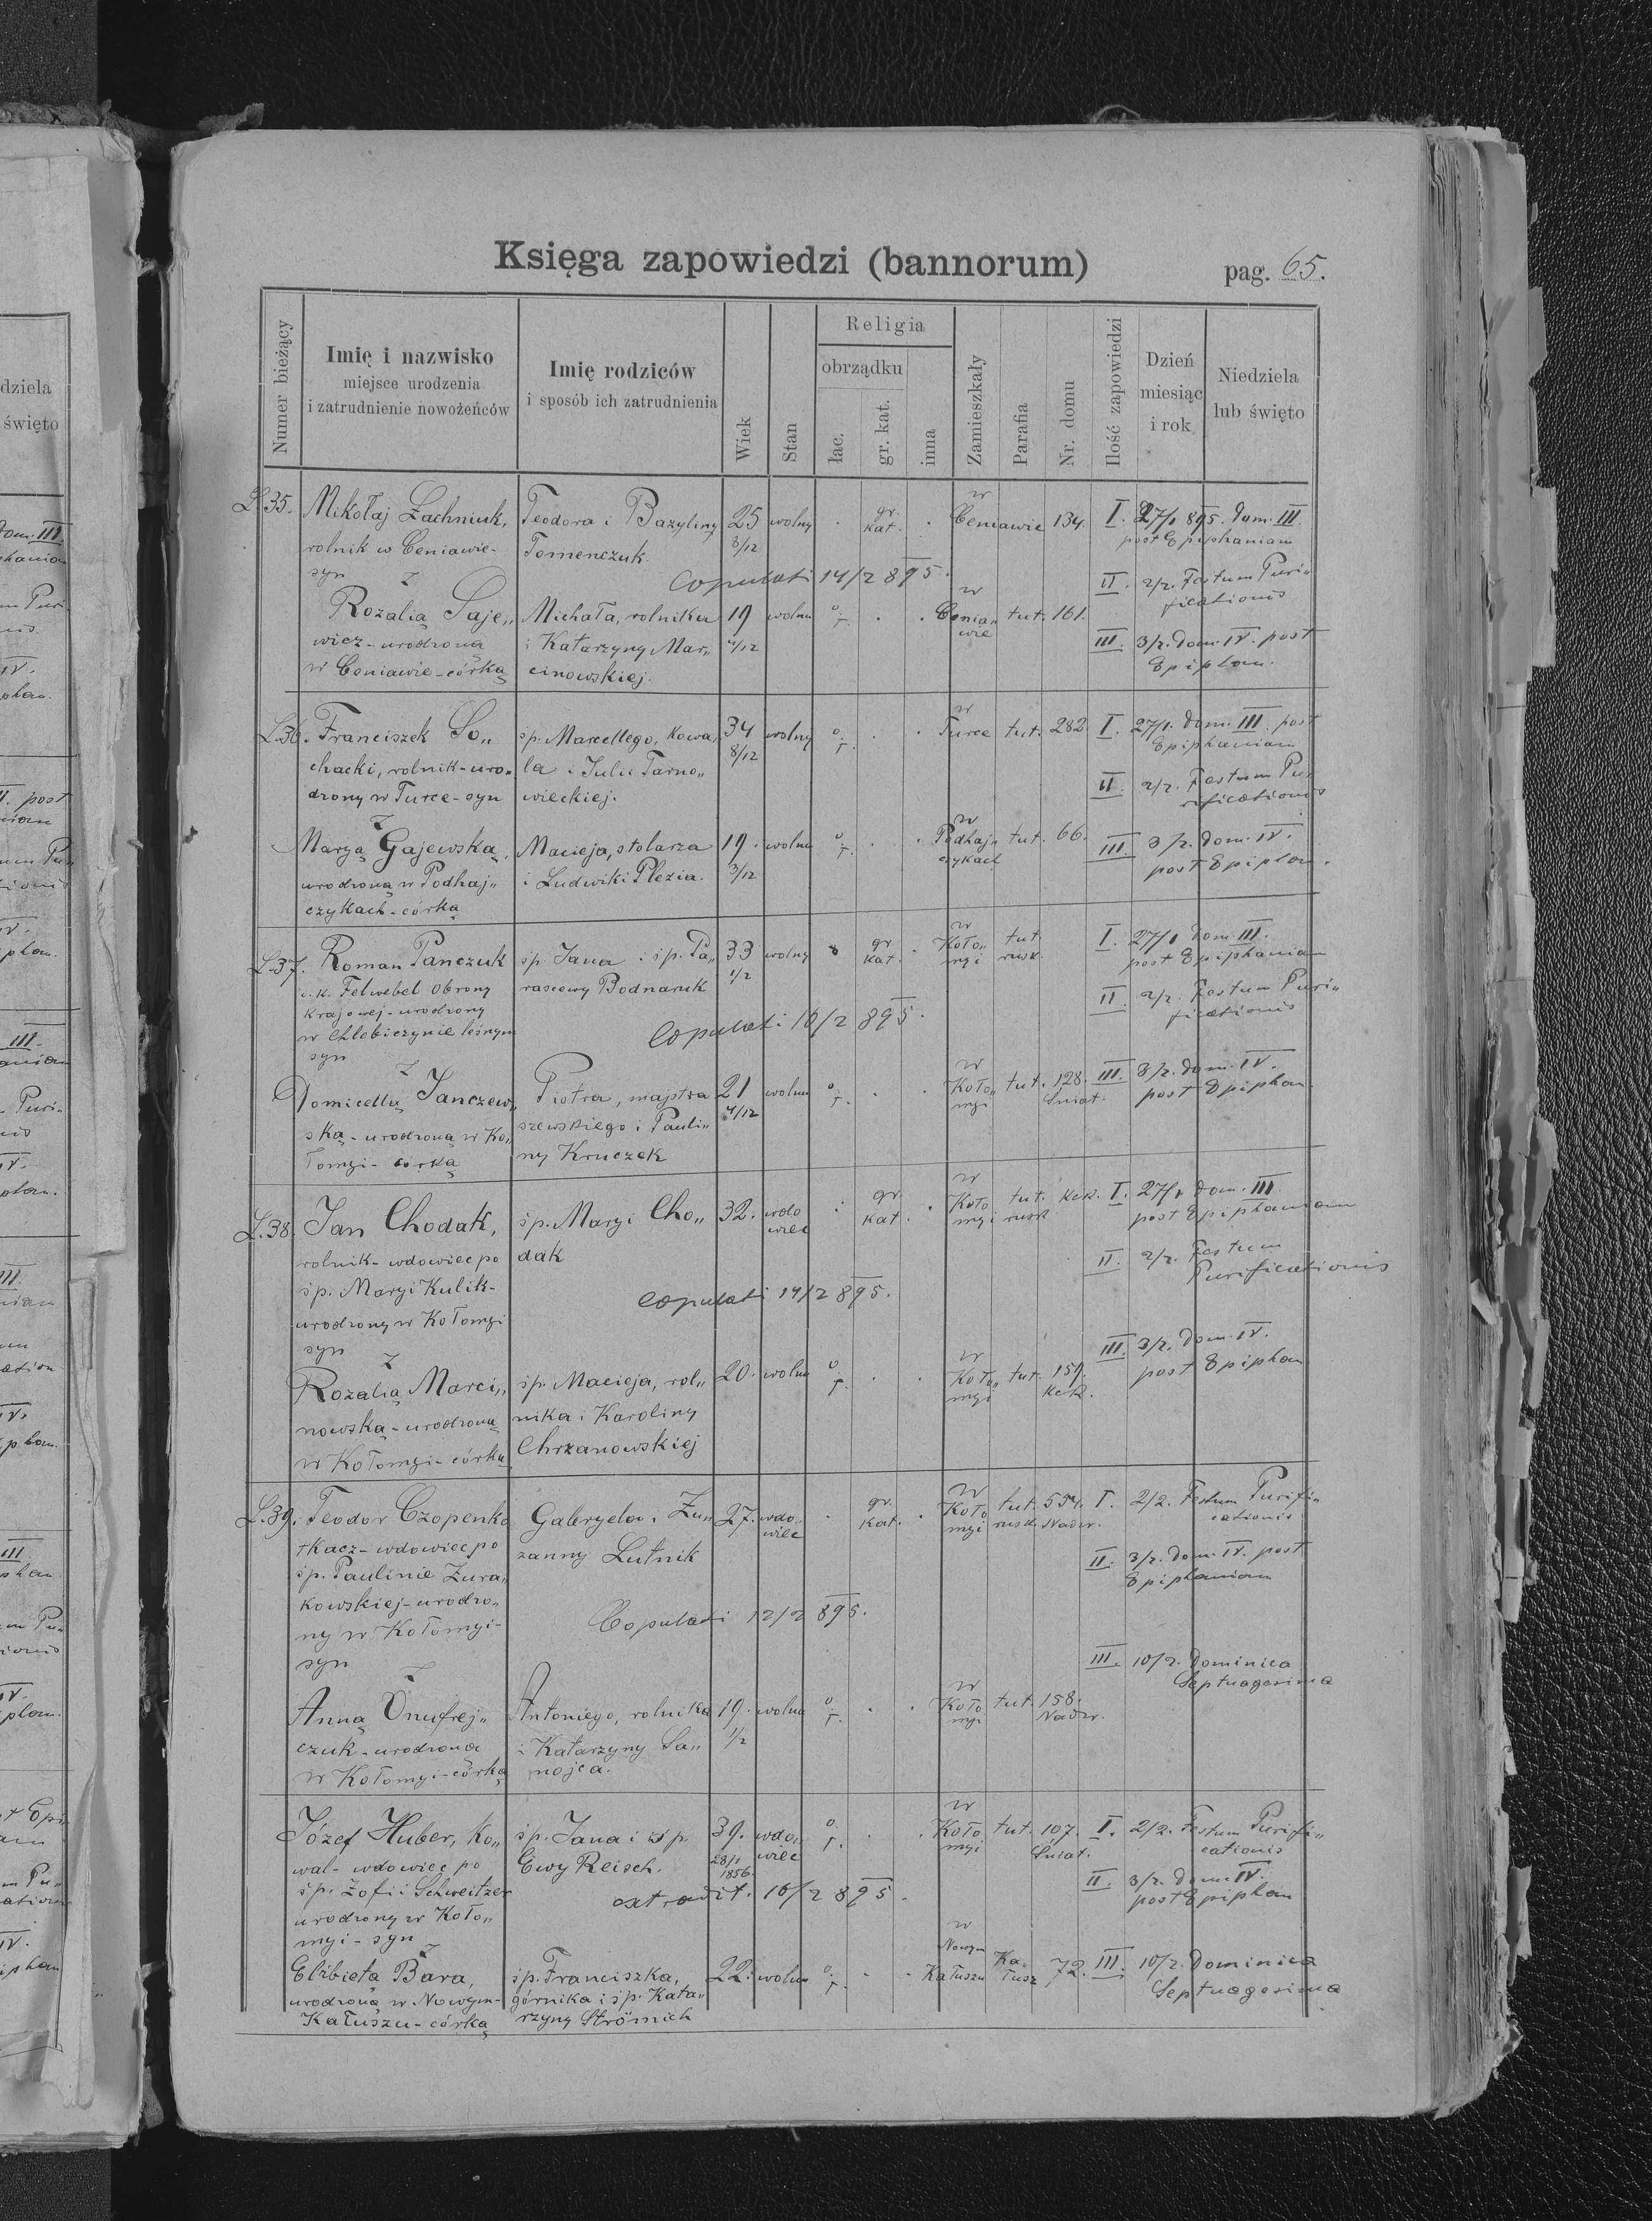 Księga zapowiedzi (bannorum)
pag. 65.
Numer bieżący
Imię i nazwisko
miejsce urodzenia
i zatrudnienie nowożeńców
Imię rodziców
i sposób ich zatrudnienia
Wiek
Stan
Religia
obrządku
łac.
gr. kat.
inna
Zamieszkały
Parafia
Nr. domu
Ilość zapowiedzi
Dzień
miesiąc
i rok
Niedziela
lub święto
L.35. Mikołaj Łachniuk,
rolnik w Ceniawie-
syn
z
Teodora i Bazyliny
Tomenczuk.
25
3/12
wolny
gr.
kat.
w
Ceniawie 134.
I. 27/1 895. Dom. III.
post Epiphaniam
copulati 14/2 895.
II. 2/2. Festum Puri„
ficationis
Rozalią Saje„
wicz - urodzoną
w Ceniawie - córką
Michała, rolnika
i Katarzyny Mar„
cinowskiej.
19
4/12
wolna
o.
r.
w
Cenia„
wie
tut. 161.
III. 3/2. Dom. IV. post
Epiphan.
L.36. Franciszek So„
chacki, rolnik - uro„
dzony w Turce - syn
z
śp. Marcellego, kowa„
la i Julii Tarno„
wieckiej.
34
8/12
wolny
o.
r.
w
Turce tut. 282
I. 27/1. Dom. III. post
Epiphaniam
II. 2/2. Festum Pu„
rificationis
Maryą Gajewską,
urodzoną w Podhaj„
czykach - córką
Macieja, stolarza
i Ludwiki Plezia.
19.
3/12
wolna
o.
r.
w
Podhaj„
czykach
tut. 66.
III 3/2. Dom. IV.
post Epiphan.
L.37. Roman Panczuk
c.k. Felwebel obrony
krajowej - urodzony
w Chlebiczynie leśnym
syn
z
śp. Jana i śp. Pa„
rascewy Bodnaruk
33
1/2
wolny
gr.
kat.
w
Koło„
myi
tut.
rusk.
I. 27/1 Dom. III.
post Epiphaniam
II. 2/2. Festum Puri„
ficationis
Copulati 16/2 895.
Domicellą Janczew„
ską - urodzoną w Ko„
łomyi - córką
Piotra, majstra
szewskiego i Pauli„
ny Kruczek
21
4/12
wolna
o.
r.
w
Koło„
myi
tut. 128.
Śniat.
III. 3/2. Dom. IV.
post Epiphan.
L.38. Jan Chodak,
rolnik - wdowiec po
śp. Maryi Kulik-
urodzony w Kołomyi
syn
z
śp. Maryi Cho„
dak
32.
wdo
wiec
gr.
kat.
w
Koło
myi
tut.
rusk
Kck.
I. 27/1 Dom. III
post Epiphaniam
II. 2/2. Festum
Purificationis
copulati 14/2 895.
Rozalią Marci„
nowską - urodzoną
w Kołomyi - córką
śp. Macieja, rol„
nika i Karoliny
Chrzanowskiej
20. wolna
o
r.
w
Koło„
myi
tut. 159.
Kck.
III. 3/2. Dom. IV.
post Epiphan
L.39. Teodor Czopenko
tkacz - wdowiec po
śp. Paulinie Żura„
kowskiej - urodzo„
ny w Kołomyi-
syn
z
Gabryela i Zu„
zanny Lutnik
27. wdo„
wiec
gr.
kat.
w
Koło
myi
tut.
rusk
554.
Nadw.
I. 2/2. Festum Purifi„
cationis
II. 3/2. Dom. IV. post
Epiphaniam
Copulati 12/2 895.
III. 10/2. Dominica
Septuagesima
Anną Onufrej„
czuk - urodzoną
w Kołomyi - córką
Antoniego, rolnika
i Katarzyny Sa„
nojca.
19.
1/2
wolna
o
r.
w
Koło
myi
tut. 158.
Nadw.
Józef Huber, ko„
wal - wdowiec po
śp. Zofii Schweitzer
urodzony w Koło„
myi - syn
z
śp. Jana i śp.
Ewy Reisch.
39.
28/1
1856.
wdo„
wiec
o.
r.
w
Koło
myi
tut. 107.
Śniat.
I. 2/2. Festum Purifi„
cationis
II. 3/2. Dom. IV.
post Epiphan
extradit. 16/2 895.
Elżbieta Bara,
urodzoną w Nowym-
Kałuszu - córką
śp. Franciszka,
górnika i śp. Kata„
rzyny Strömich
22. wolna
o.
r.
w
Nowym
Kałuszu
Ka„
łusz
72.
III. 10/2. Dominica
Septuagesima